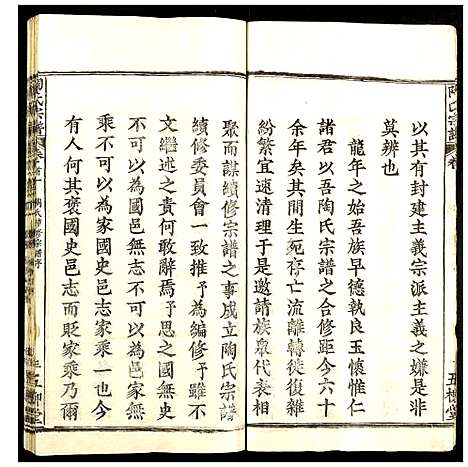 陶氏宗譜
五柳堂
以其有封建主義宗派主義之嫌是非
莫辨也
龍年之始吾族早德執良玉懷惟仁
諸君以吾陶氏宗譜之合修距今六十
余年矣其間生死存亡流離轉徙復雜
紛繁宜速清理于是邀請族衆代表相
聚而謀續修宗譜之事成立陶氏宗譜
續修委員會一致推予為編修予雖屬
文繼述之責何敢辭焉予思之國無史
乘不可以為國邑無志不可以為邑家
乘不可以為家國史邑志家乘一也焉
有人何其褒國史邑志而貶家乘乃爾
陶氏宗譜
五柳堂